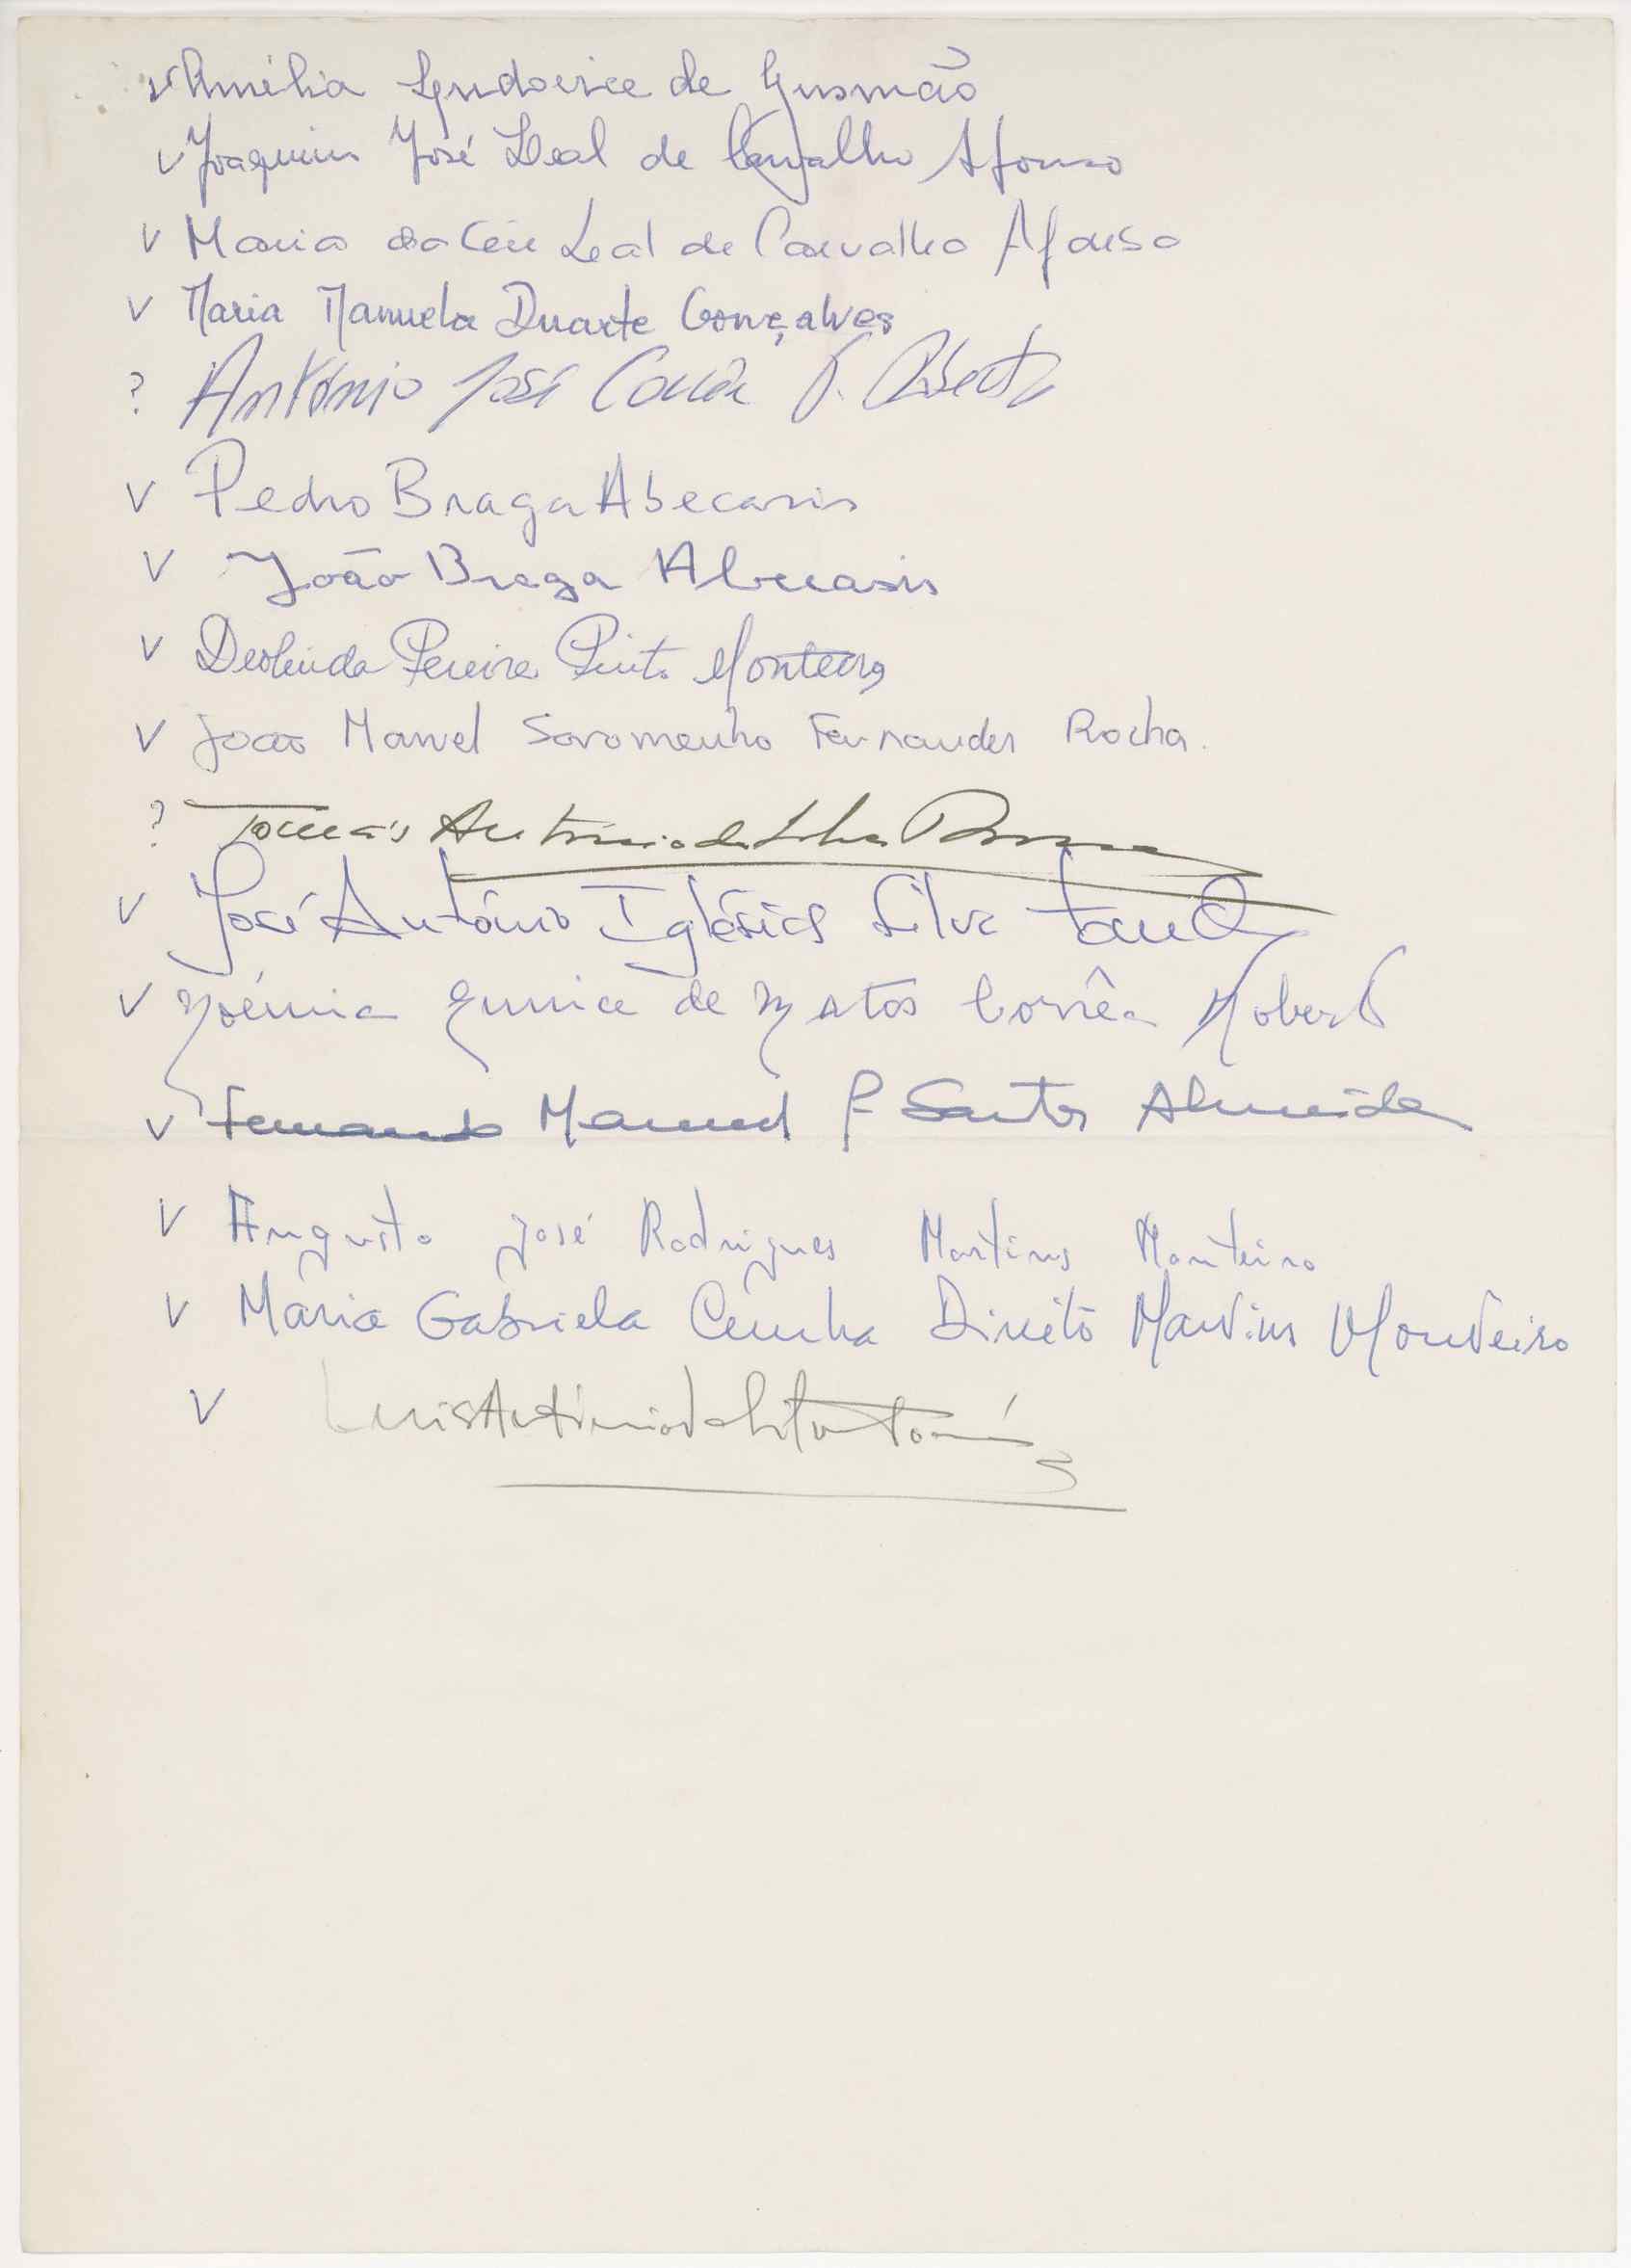 v Amélia Ludovice de Gusmão
v Joaquim José Leal de Carvalho Afonso
v Maria do Céu Leal de Carvalho Afonso
v Maria Manuela Duarte Gonçalves
? António José Corrêa
v Pedro Braga Abecasis
v João Braga Abecasis
v Deolinda Pereira Pinto Monteiro
v João Manuel Soromenho Fernandes Rocha.
? Tomás António da Silva
v José António Iglésias Silva
v Noémia Eunice de Matos Corrêa Robert
v Fernando Manuel F Santos Almeida
v Augusto José Rodrigues Martins Monteiro
v Maria Gabriela Cunha Direito Martins Monteiro
v Luis António da Silva Tomás